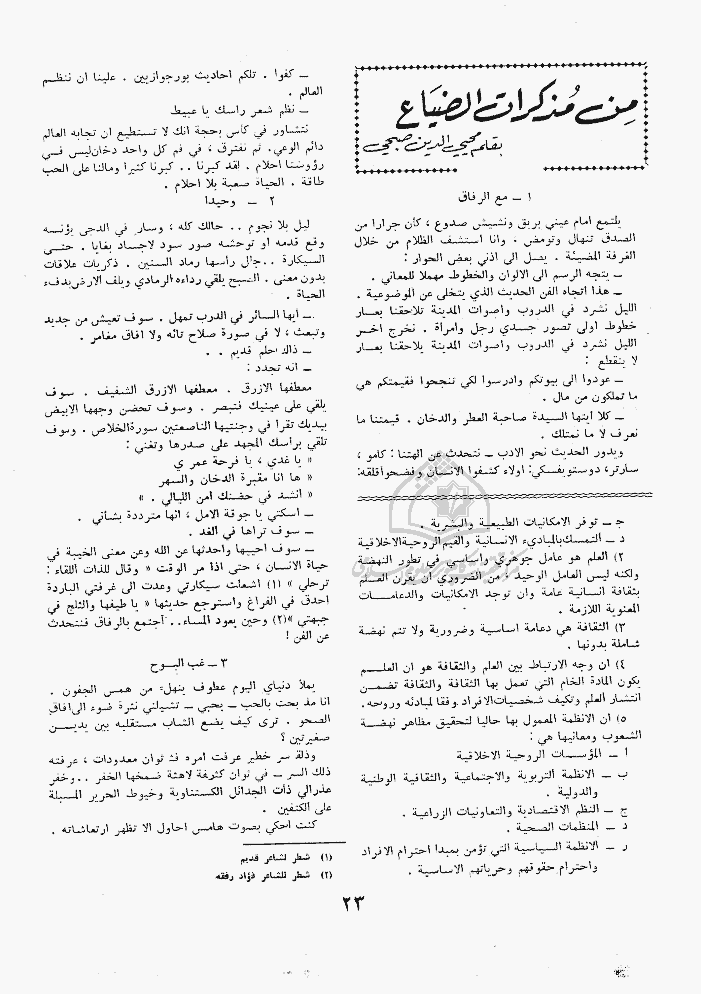 من مذكرات الضياع
بقلم محيي الدين صبحي
١ ـ مع الرفاق
يلتمع امام عيني بريق ونشيش صدوع ، كأن جرارا من
الصدق تنهال وتومض . وانا استشف الظلام من خلال
الغرفة المضيئة . يصل الى اذني بعض الحوار :
ـ يتجه الرسم الى الالوان والخطوط مهملا للمعاني .
ـ هذا اتجاه الفن الحديث الذي يتخلى عن الموضوعية .
الليل نشرد في الدروب واصوات المدينة تلاحقنا بعار
خطوط اولى تصور جسدي رجل وامرأة . نخرج اخر
الليل نشرد في الدروب واصوات المدينة يلاحقنا بعار
لا ينقطع :
ـ عودوا الى بيوتكم وادرسوا لكي تنجحوا فقيمتكم هي
ما تملكون من مال .
ـ كلا ايتها السيدة صاحبة العطر والدخان . قيمتنا ما
نعرف لا ما نمتلك .
ويدور الحديث نحو الادب ـ نتحدث عن الهتنا : كامو ،
سارتر، دوستويفسكي: اولاء كشفوا الانسان وفضحوا قلقه:
ج ـ توفر الامكانيات الطبيعية والبشرية .
د ـ التمسك بالمبادىء الانسانية والقيم الروحية الاخلاقية
٢) العلم هو عامل جوهري واساسي في تطور النهضة
ولكنه ليس العامل الوحيد ، من الضروري ان يقرن العلم
بثقافة انسانية عامة وان توجد الامكانيات والدعامات
المعنوية اللازمة .
٣) الثقافة هي دعامة اساسية وضرورية ولا تتم نهضة
شاملة بدونها .
٤) ان وجه الارتباط بين العلم والثقافة هو ان العلم
يكون المادة الخام التي تعمل بها الثقافة والثقافة تضمن
انتشار العلم وتكيف شخصيات الافراد وفقا لمبادئه وروحه.
٥) ان الانظمة المعمول بها حاليا لتحقيق مظاهر نهضة
الشعوب ومعانيها هي :
أ ـ المؤسسات الروحية الاخلاقية
ب ـ الانظمة التربوية والاجتماعية والثقافية الوطنية
والدولية .
ج ـ النظم الاقتصادية والتعاونيات الزراعية .
د ـ المنظمات الصحية .
ر ـ الانظمة السياسية التي تؤمن بمبدا احترام الافراد
واحترام حقوقهم وحرياتهم الاساسية .
ـ كفوا . تلكم احاديث بورجوازيين . علينا ان ننظم
العالم .
ـ نظم شعر راسك يا عبيط
نتشاور في كاس بحجة انك لا تستطيع ان تجابه العالم
دائم الوعي. ثم نفترق ، في فم كل واحد دخان ليس في
رؤوسنا احلام . لقد كبرنا .. كبرنا كثيرا ومالنا على الحب
طاقة . الحياة صعبة بلا احلام .
٢ ـ وحيدا
ليل بلا نجوم .. حالك كله ، وسار في الدجى يؤنسه
وقع قدمه او توحشه صور سود لاجساد بغايا . حتى
السيكارة .. جال راسها رماد السنين . ذكريات علاقات
بدون معنى . الصبح يلقي رداءه الرمادي ويلف الارض بدفء
الحياة .
ـ ايها السائر في الدرب تمهل . سوف تعيش من جديد
وتبعث ، لا في صورة صلاح تائه ولا افاق مغامر .
ـ ذاك حلم قديم . .
ـ انه تجدد :
معطفها الازرق . معطفها الازرق الشفيف . سوف
يلقي على عينيك فتبصر . وسوف تحضن وجهها الابيض
بيديك تقرا في وجنتيها الناصعتين سورة الخلاص . وسوف
تلقي براسك المجهد على صدرها وتغني :
« يا غدي ، يا فرحة عمري
« ها انا مقبرة الدخان والسهر
« انشد في حضنك امن الليالي . »
ـ اسكتي يا جوقة الامل ، انها مترددة بشأني .
ـ سوف تراها في الغد .
ـ سوف احييها واحدثها عن الله وعن معنى الخيبة في
حياة الانسان ، حتى اذا مر الوقت « وقال للذات اللقاء :
ترحلي » (١) اشعلت سيكارتي وعدت الى غرفتي الباردة
احدق في الفراغ واسترجع حديثها « يا طيفها والثلج في
جبهتي »(٢) وحين يعود المساء.. اجتمع بالرفاق فنتحدث
عن الفن !
٣ ـ غب البوح
يملأ دنياي اليوم عطوف ينهل من همس الجفون .
انا مذ بحت بالحب ـ يحبي ـ تشيلني نثرة ضوء الى افاق
الصحو . ترى كيف يضع الشاب مستقبله بين يدين
صغيرتين ؟
وذلة سر خطير عرفت امره في ثوان معدودات ، عرفته
ذلك السر ـ في ثوان كثيفة لاهثة ضمخها الخفر .. وخفر
عذرالي ذات الجدائل الكستناوية وخيوط الحرير المسبلة
على الكتفين .
كنت احكي بصوت هامس احاول الا تظهر ارتعاشاته .
(١) شطر لشاعر قديم
(٢) شطر للشاعر فؤاد رفقه
٢٣